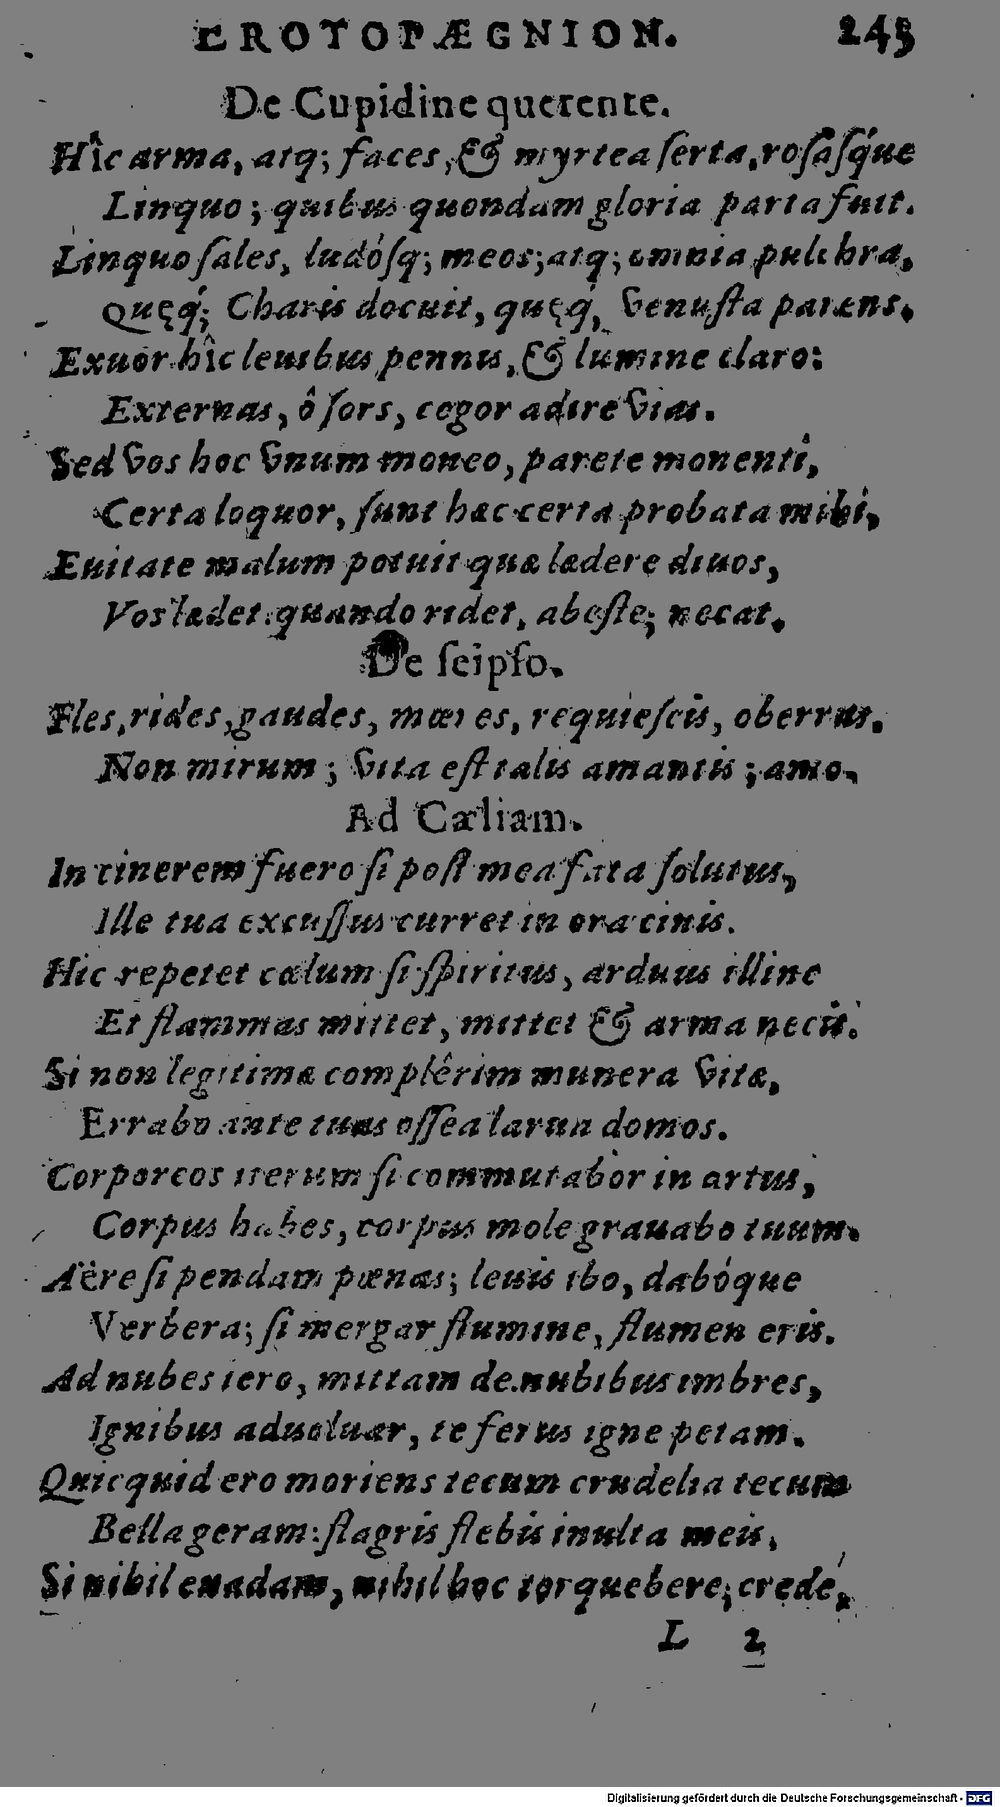 EROTOPÆGNION. 243
De Cupidine querente.
Hîc arma, atq; faces, & myrtea ſerta, roſáſq́ue
Linquo; quibus quondam gloria parta fuit.
Linquo ſales, ludóſq; meos; atq; omnia pulchra,
Quęq́; Charis docuit, quęq́, Venuſta parens.
Exuor hîc leuibus pennis, & lumine claro:
Externas, ô ſors, cogor adire vias.
Sed vos hoc vnum moneo, parete monenti,
Certa loquor, ſunt hæc certa probata mihi,
Euitate malum potuit quæ lædere diuos,
Vos lædet: quando ridet, abeſte; necat.
De ſeipſo.
Fles, rides, gaudes, mœres, requieſcis, oberras.
Non mirum; vita eſt talis amantis; amo.
Ad Cæliam.
In cinerem fuero ſi poſt mea fata ſolutus,
Ille tua excuſſus curret in ora cinis.
Hic repetet cœlum ſi ſpiritus, arduus illinc
Et flammas mittet, mittet & arma necis.
Si non legitimæ complêrim munera vitæ,
Errabo ante tuas oſſea larua domos.
Corporeos iterum ſi commutabor in artus,
Corpus habes, corpus mole grauabo tuum.
Aëre ſi pendam pœnas; leuis ibo, dabóque
Verbera; ſi mergar flumine, flumen eris.
Ad nubes iero, mittam de nubibus imbres,
Ignibus aduoluar, te ferus igne petam.
Quicquid ero moriens tecum crudelia tecum
Bella geram: flagris flebis inulta meis.
Si nihil euadam, nihil hoc torquebere; crede,
L 2
Digitalisierung gefördert durch die Deutsche Forschungsgemeinschaft - DFG